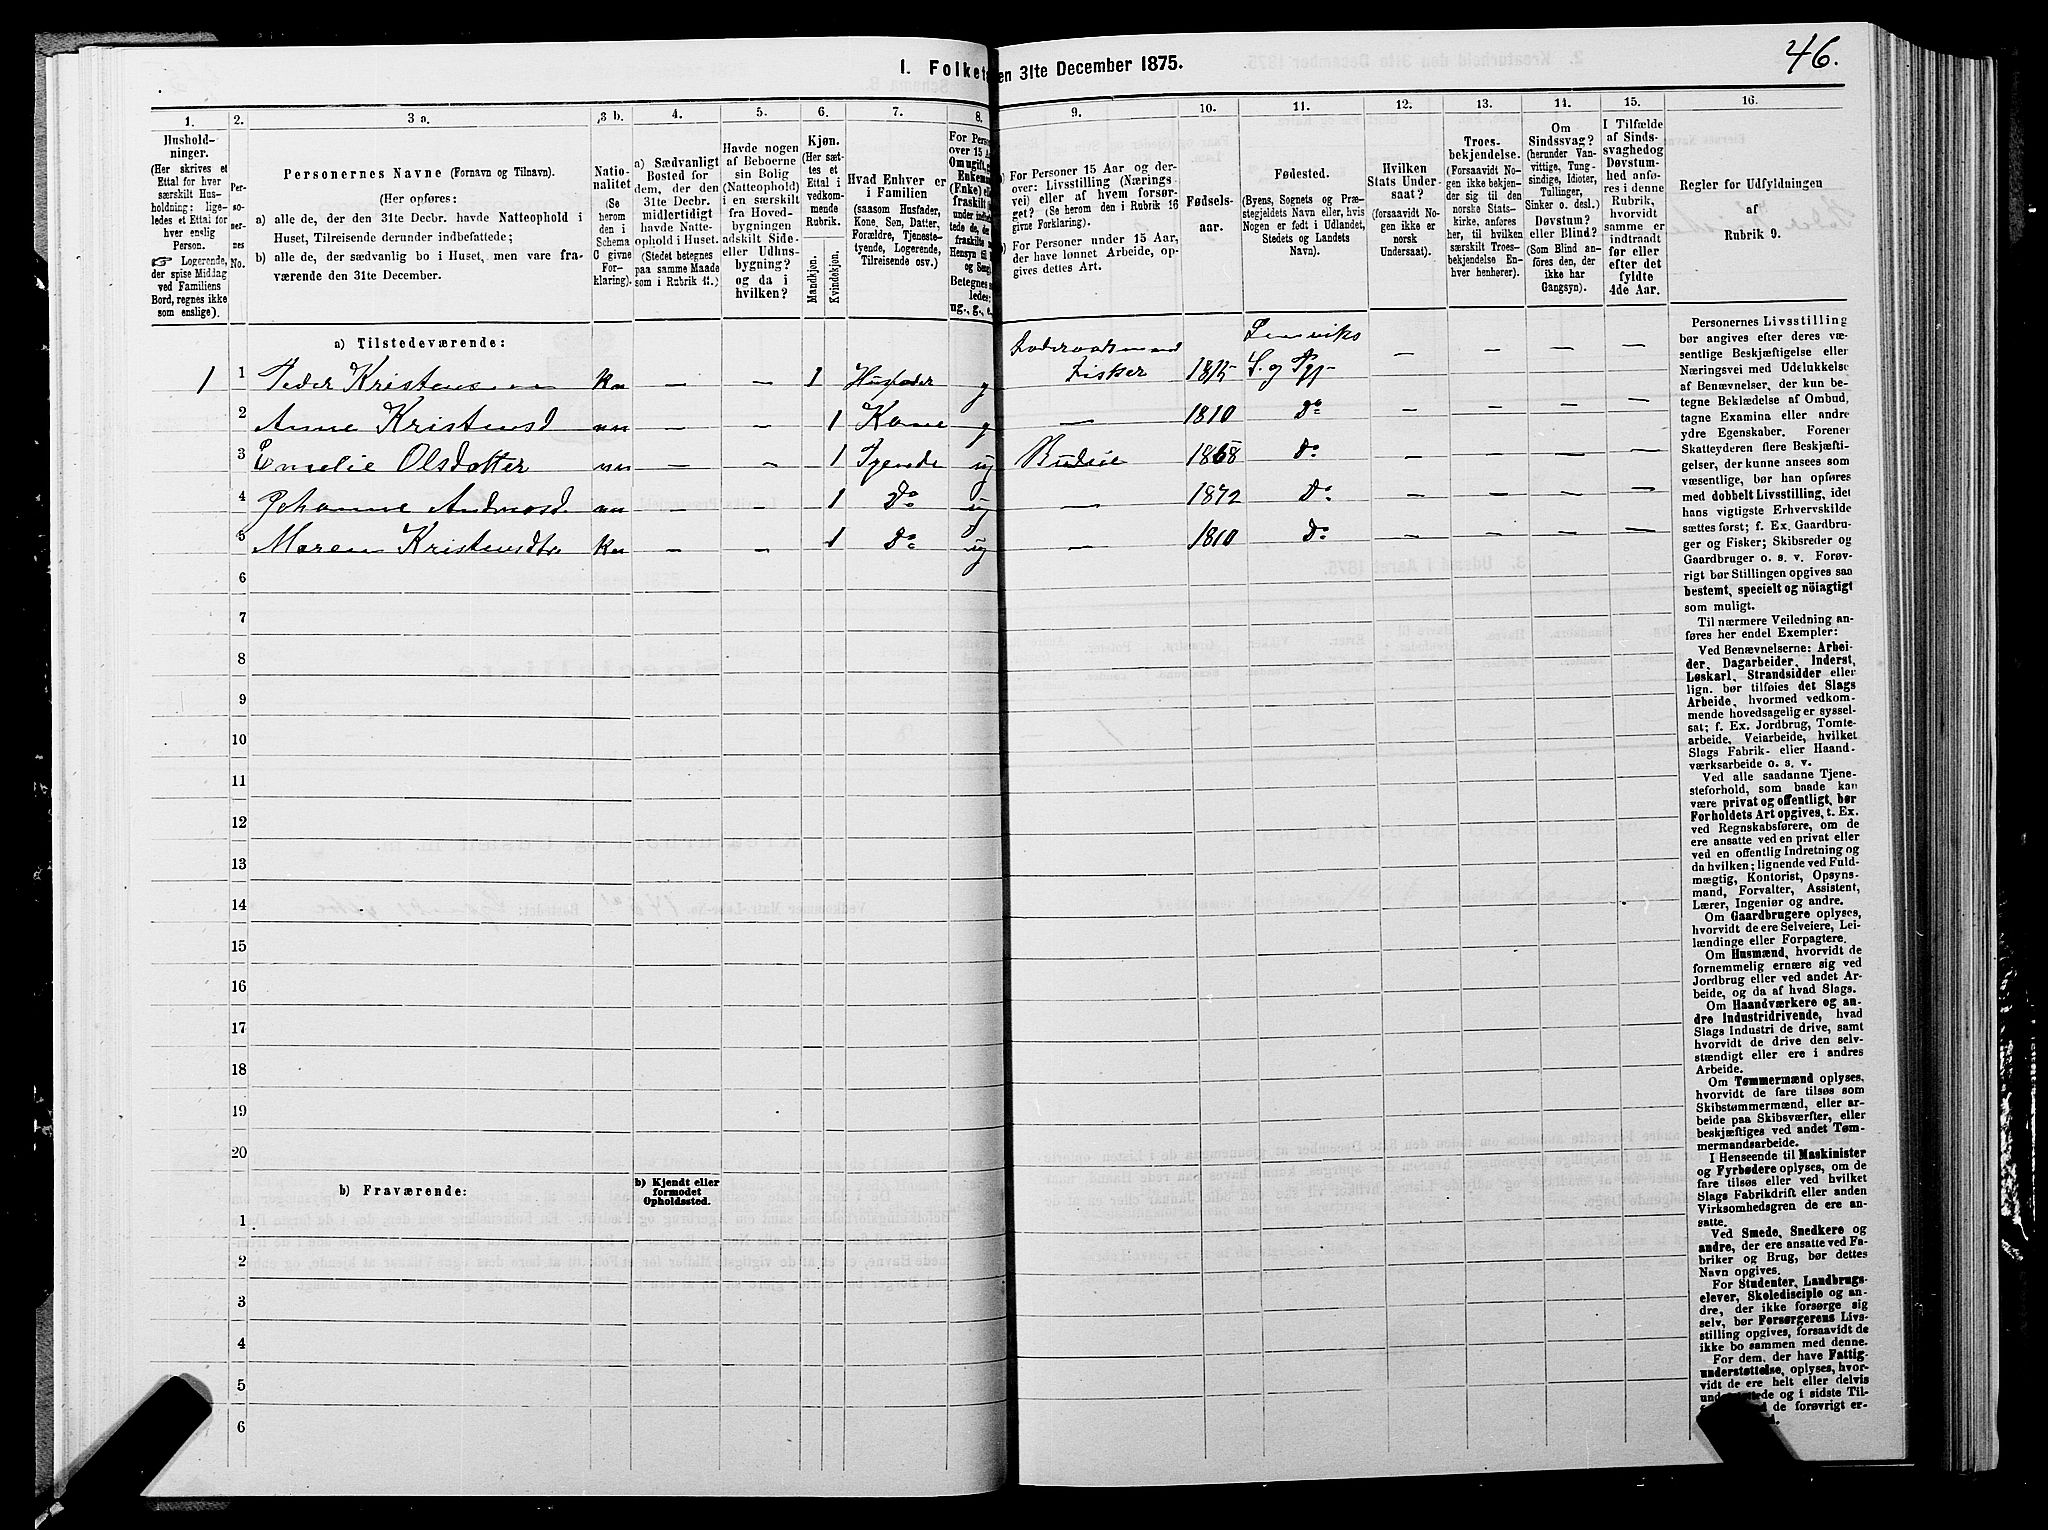 46.
I. Folket en 31te December 1875.
1. 2. 3 a. 3 b. 4. 5. 6. 7. 8. 9. 10. 11. 12. 13. 14. 15. 16.
Hushold-
ninger.
(Her skrives et
Ettal for hver
særskilt Hus-
holdning; lige-
ledes et Ettal for
hver enslig
Person.
☞ Logerende,
der spise Middag
ved Familiens
Bord, regnes ikke
som enslige).
Per-
so-
ner-
nes
No.
Personernes Navne (Fornavn og Tilnavn).
(Her opføres:
a) alle de, der den 31te Decbr. havde Natteophold i
Huset, Tilreisende derunder indbefattede;
b) alle de, der sædvanlig bo i Huset, men vare fra-
værende den 31te December.
Natio-
nalitet
(Se
herom
den i
Schema
C givne
For-
klaring).
a) Sædvanligt
Bosted for
dem, der den
31te Decbr.
midlertidigt
havde Natte-
ophold i Huset.
(Stedet betegnes
paa samme Maade
som i Rubrik 11.)
Havde nogen
af Beboerne
sin Bolig
(Natteophold)
i en særskilt
fra Hoved-
bygningen
adskilt Side-
eller Udhus-
bygning?
og da i
hvilken?
Kjøn.
(Her sæt-
tes et
Ettal i
vedkom-
mende
Rubrik.
Mandkjøn.
Kvindekjøn.
Hvad Enhver er
i Familien
(saasom Husfader,
Kone, Søn, Datter,
Forældre, Tjeneste-
tyende, Logerende,
Tilreisende osv.)
For Person
over 15 Aa
Om ugift, g
Enkem
(Enke) el
fraskilt
Betegnes s
ledes:
ug., g., e.
a) For Personer 15 Aar og der-
over: Livsstilling (Nærings
vei) eller af hvem forsør-
get? (Se herom den i Rubrik 16
givne Forklaring).
b) For Personer under 15 Aar,
der have lønnet Arbeide, op-
gives dettes Art.
Fødsels-
aar.
Fødested.
(Byens, Sognets og Præ-
stegjeldets Navn eller, hvis
Nogen er født i Udlandet,
Stedets og Landets
Navn).
Hvilken
Stats Under-
saat?
(forsaavidt No-
gen ikke er
norsk
Undersaat).
Troes-
bekjendelse.
(Forsaavidt No-
gen ikke bekjen-
der sig til den
norske Stats-
kirke, anføres
her, til hvilken
særskilt Troes-
bekjendelse En-
hver henhører).
Om
Sindssvag?
(herunder Van-
vittige, Tung-
sindige, Idioter,
Tullinger,
Sinker o. desl.)
Døvstum?
eller Blind?
(Som Blind an-
føres den, der
ikke har
Gangsyn).
I Tilfælde
af Sinds-
svaghed og
Døvstum-
hed anfø-
res i denne
Rubrik,
hvorvidt
samme er
indtraadt
før eller
efter det
fyldte
4de Aar.
Regler for Udfyldningen
af
Rubrik 9.
a) Tilstedeværende:
1 1 Peder Kristensen kn — — 1 Husfader g Foderaadsmand Fisker 1815 Lenviks S. og Pgj. — — — —
2 Anne Kristensd nn — — 1 Kone g — 1810 Do — — — —
3 Emelie Olsdatter nn — — 1 Tjende ug Budeie 1858 Do — — — —
4 Johanne Andreasd nn — — 1 Do ug — 1872 Do — — — —
5 Maren Kristensdtr kn — — 1 Do ug — 1810 Do — — — —
6
7
8
9
10
11
12
13
14
15
16
17
18
19
20
b) Fraværende:
b) Kjendt eller
formodet
Opholdssted.
1
2
3
4
5
6
Personernes Livsstilling
bør angives efter deres væ-
sentlige Beskjæftigelse eller
Næringsvei med Udelukkelse
af Benævnelser, der kun be-
tegne Beklædelse af Ombud,
tagne Examina eller andre
ydre Egenskaber. Forener
Skatteyderen flere Beskjæfti-
gelser, der kunne ansees som
væsentlige, bør han opføres
med dobbelt Livsstilling, idet
hans vigtigste Erhvervskilde
sættes først; f. Ex. Gaardbru-
ger og Fisker; Skibsreder og
Gaardbruger o. s. v. Forøv-
rigt bør Stillingen opgives saa
bestemt, specielt og nöiagtigt
som muligt.
Til nærmere Veiledning an-
føres her endel Exempler:
Ved Benævnelserne: Arbei-
der, Dagarbeider, Inderst,
Løskarl, Strandsidder eller
lign. bør tilføies det Slags
Arbeide, hvormed vedkom-
mende hovedsagelig er syssel-
sat; f. Ex. Jordbrug, Tomte-
arbeide, Veiarbeide, hvilket
Slags Fabrik- eller Haand-
værksarbeide o. s. v.
Ved alle saadanne Tjene-
steforhold, som baade kan
være privat og offentligt, bør
Forholdets Art opgives, t. Ex.
ved Regnskabsførere, om de
ere ansatte ved en privat eller
ved en offentlig Indretning og
da hvilken; lignende ved Fuld-
mægtig, Kontorist, Opsyns-
mand, Forvalter, Assistent,
Lærer, Ingeniør og andre.
Om Gaardbrugere oplyses,
hvorvidt de ere Selveiere, Lei-
lændinge eller Forpagtere.
Om Husmænd, hvorvidt de
fornemmelig ernære sig ved
Jordbrug eller ved andet Ar-
beide, og da af hvad Slags.
Om Haandværkere og an-
dre Industridrivende, hvad
Slags Industri de drive, samt
hvorvidt de drive den selv-
stændigt eller ere i andres
Arbeide.
Om Tømmermænd oplyses,
hvorvidt de fare tilsøs som
Skibstømmermænd, eller ar-
beide paa Skibsværfter, eller
beskjæftiges ved andet Tøm-
mermandsarbeide.
I Henseende til Maskinister
og Fyrbødere oplyses, om de
fare tilsøs eller ved hvilket
Slags Fabrikdrift eller anden
Virksomhedsgren de ere an-
satte.
Ved Smede, Snedkere og
andre, der ere ansatte ved Fa-
briker og Brug, bør dettes
Navn opgives.
For Studenter, Landbrugs-
elever, Skoledisciple og an-
dre, der ikke forsørge sig
selv, bør Forsørgerens Livs-
stilling opgives, forsaavidt de
ikke bo sammen med denne.
For dem, der have Fattig-
understøttelse, oplyses, hvor-
vidt de ere helt eller delvis
de og i sidste Til-
de forøvrigt er-